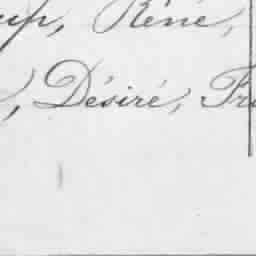 René,
, Désiré, Fr